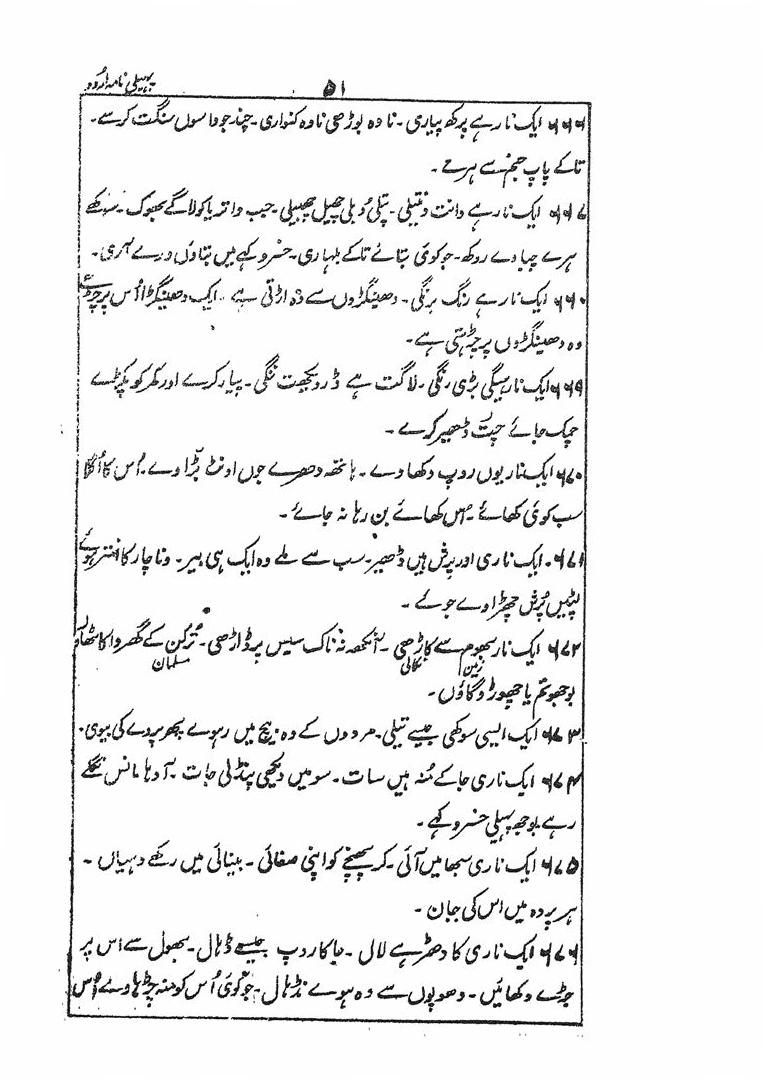 پہیلی نامہ اُردو
۵۱
۶۶۶ ایک نار ہے پرکھ پیاری۔ نا وہ بوڑھی نا وہ کنواری۔ چند جودا سوں سنگت کرے۔
تاکے پاپ جنم سے ہرے۔
۶۶۷ ایک نار ہے دانت دنتیلی۔ پتلی دُبلی چھیل چھبیلی۔ جب وا تریا کو لاگے بھوک۔ سوکھے
ہرے چباوے روکھ۔ جو کوئی بتائے تاکے بلہاری۔ خسرو کہے میں بتاؤں ورے آری۔
۶۶۸ ایک نار ہے رنگ برنگی۔ دھینگڑوں سے وہ اڑتی ہے۔ ایک دھینگڑا اُس پر چڑھے
وہ دھینگڑوں پر چڑھتی ہے۔
۶۶۹ ایک نار ہیگی بڑی رنگی۔ لاگت ہے ڈر دیکھت ننگی۔ پیار کرے اور کمر کو پکڑے
چمک جائے جب ڈھیر کرے۔
۶۷۰ ایک نار یوں روپ دکھاوے۔ ہاتھ دھرے جوں اونٹ بڑاوے۔ اُس کا اُگلا
سب کوئی کھائے۔ اُس کھائے بن رہا نہ جائے۔
۶۷۱۔ ایک ناری اور پرش ہیں ڈھیر۔ سب سے ملے وہ ایک ہی بیر۔ ونا چار کا انتر ہوئے
لپٹیں پُرش چھڑاوے جوئے۔
۶۷۲ ایک نار بھوم سے کاڑھی۔ آنکھ نہ ناک سیس پر ڈاڑھی۔ تُرکن کے گھر وا کا ٹھاؤں
زمین نکالی مسلمان
بوجھو تم یا چھوڑو گاؤں۔
۶۷۳ ایک ایسی سوکھی جیسے تیلی۔ مردوں کے وہ بیچ میں رہوے پھر پردے کی بیوی۔
۶۷۴ ایک ناری جا کے مُنہ ہیں سات۔ سو میں دیکھی پنڈلی جات۔ آدھا مانس نگلے
رہے۔ بوجھ پہیلی خسرو کہے۔
۶۷۵ ایک ناری سبھا میں آئی۔ کر بھیجے کو اپنی صفائی۔ بینائی میں رکھے دھیان۔
ہر پردہ میں اس کی جان۔
۶۷۶ ایک ناری کا دھڑ ہے لال۔ جا کا روپ جیسے ڈہال۔ پھول سے اس پر
جڑے دکھائیں۔ دھوپوں سے وہ ہوے نڈہال۔ جو کوئی اُس کو منہ چڑہاوے اُس